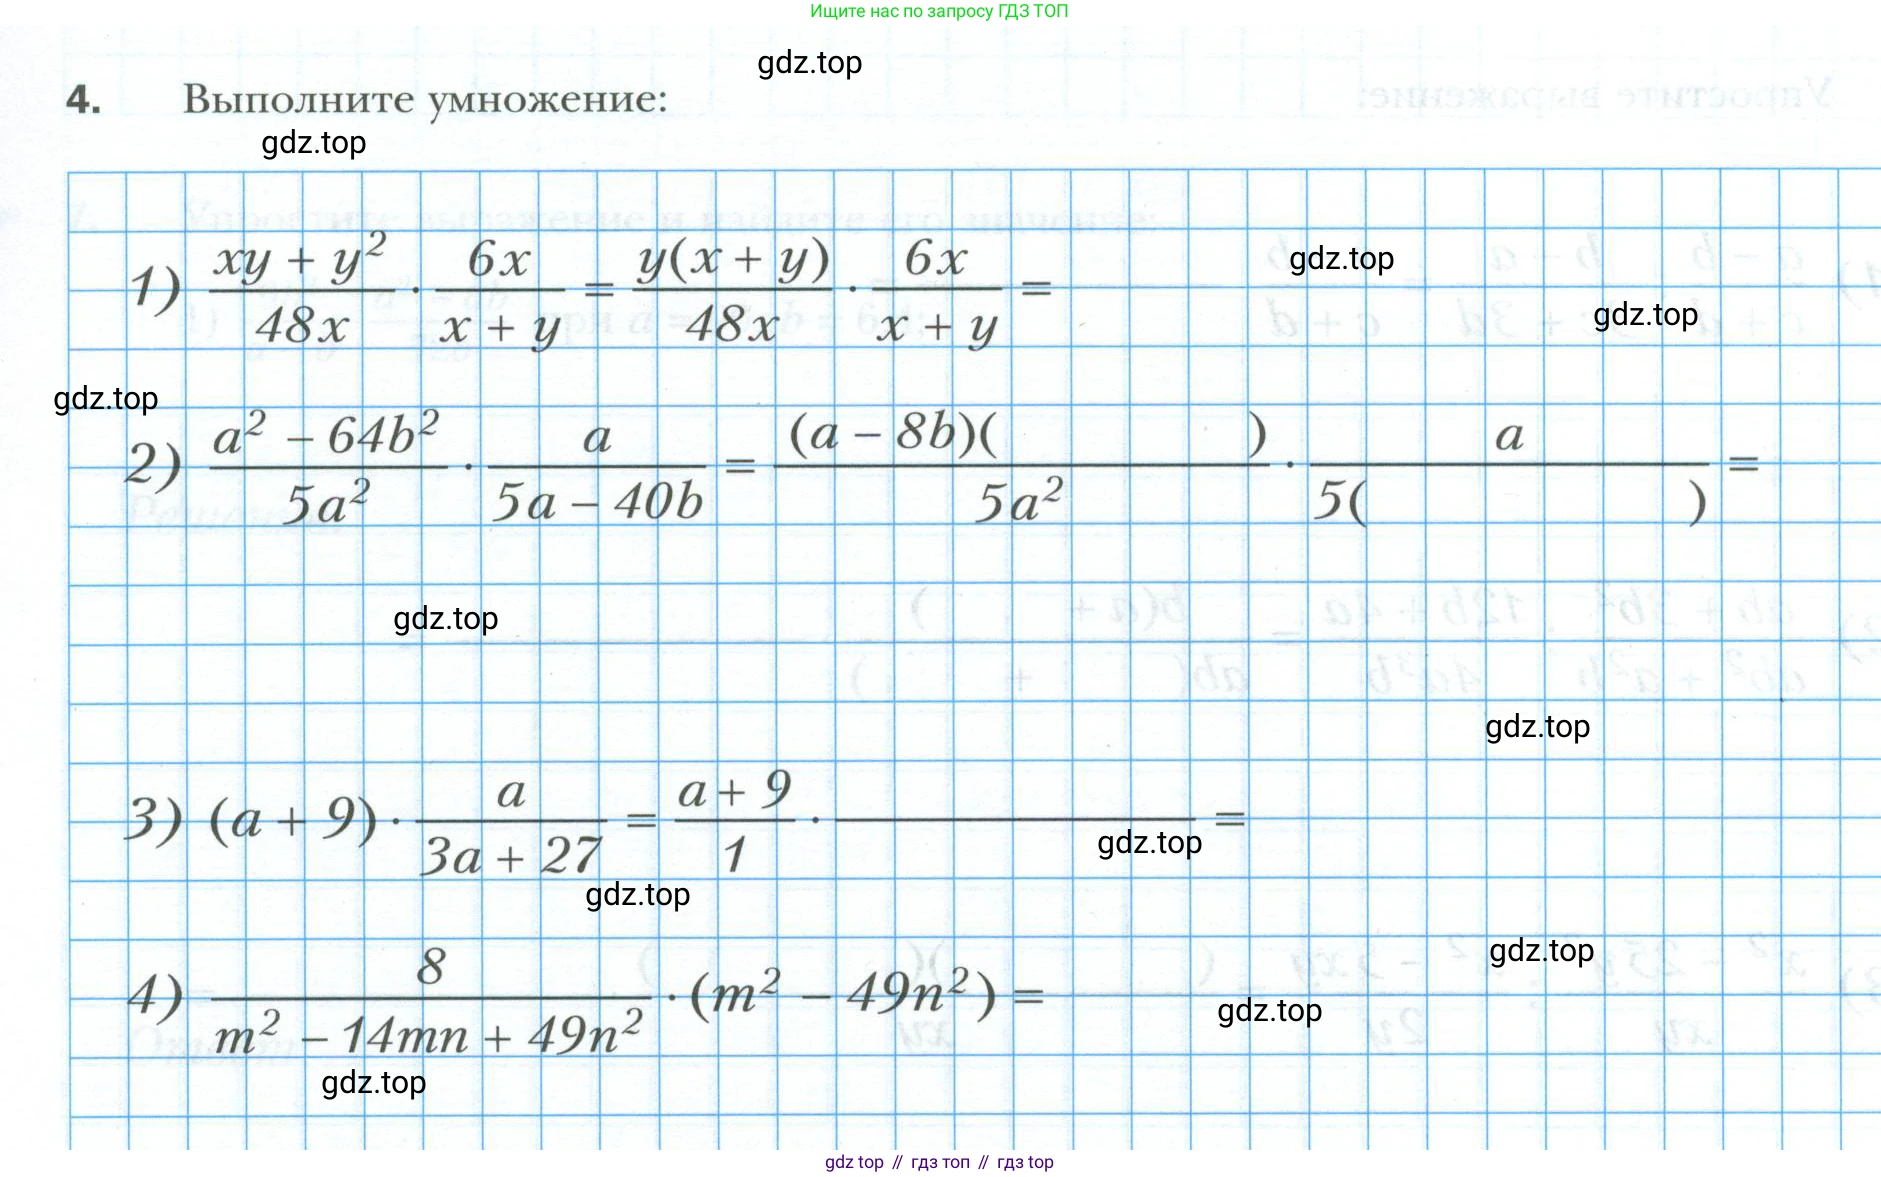 Ищите нас по запросу ГДЗ ТОП
gdz.top
4. Выполните умножение:
gdz.top
1) \frac{xy + y^2}{48x} · \frac{6x}{x + y} = \frac{y(x + y)}{48x} · \frac{6x}{x + y} =
gdz.top
gdz.top
gdz.top
2) \frac{a^2 – 64b^2}{5a^2} · \frac{a}{5a – 40b} = \frac{(a – 8b)( )}{5a^2} · \frac{a}{5( )} =
gdz.top
gdz.top
3) (a + 9) · \frac{a}{3a + 27} = \frac{a + 9}{1} · ———— =
gdz.top
gdz.top
gdz.top
4) \frac{8}{m^2 – 14mn + 49n^2} · (m^2 – 49n^2) =
gdz.top
gdz.top
gdz top // гдз топ // гдз top